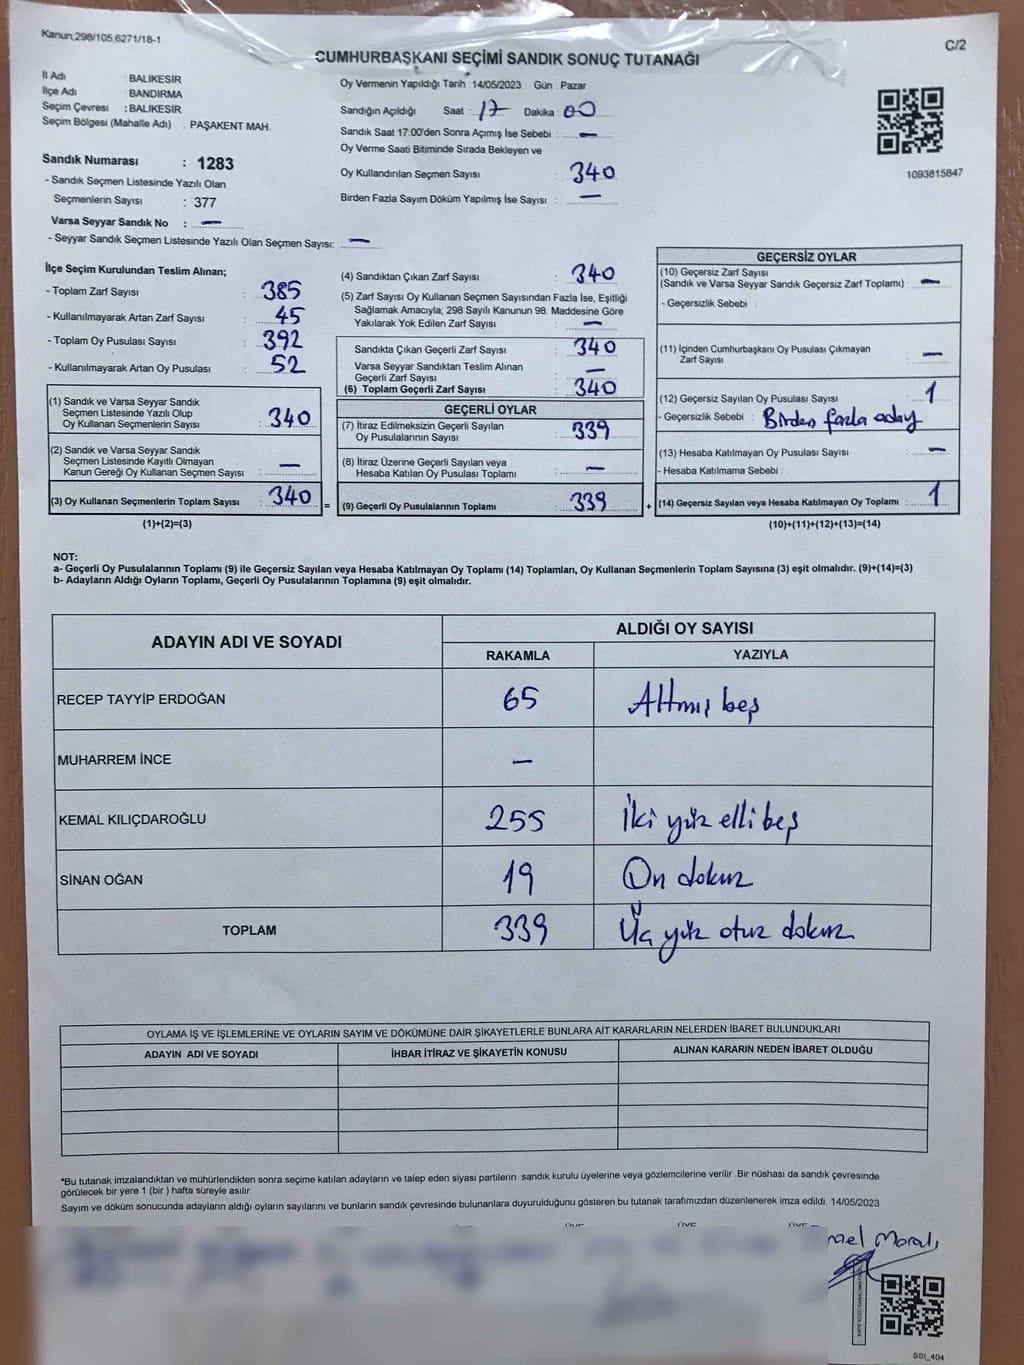 Kanun,298/105,6271/18-1
C/2
CUMHURBAŞKANI SEÇİMİ SANDIK SONUÇ TUTANAĞI
İl Adı : BALIKESİR
İlçe Adı : BANDIRMA
Seçim Çevresi : BALIKESİR
Seçim Bölgesi (Mahalle Adı) : PAŞAKENT MAH.
Sandık Numarası : 1283
- Sandık Seçmen Listesinde Yazılı Olan
Seçmenlerin Sayısı : 377
Varsa Seyyar Sandık No : —
- Seyyar Sandık Seçmen Listesinde Yazılı Olan Seçmen Sayısı: —
Oy Vermenin Yapıldığı Tarih : 14/05/2023 Gün : Pazar
Sandığın Açıldığı Saat : 17 Dakika : 00
Sandık Saat 17:00'den Sonra Açımış İse Sebebi : —
Oy Verme Saati Bitiminde Sırada Bekleyen ve
Oy Kullandırılan Seçmen Sayısı : 340
Birden Fazla Sayım Döküm Yapılmış İse Sayısı : —
1093815847
İlçe Seçim Kurulundan Teslim Alınan;
- Toplam Zarf Sayısı : 385
- Kullanılmayarak Artan Zarf Sayısı : 45
- Toplam Oy Pusulası Sayısı : 392
- Kullanılmayarak Artan Oy Pusulası : 52
(1) Sandık ve Varsa Seyyar Sandık
Seçmen Listesinde Yazılı Olup
Oy Kullanan Seçmenlerin Sayısı : 340
(2) Sandık ve Varsa Seyyar Sandık
Seçmen Listesinde Kayıtlı Olmayan
Kanun Gereği Oy Kullanan Seçmen Sayısı : —
(3) Oy Kullanan Seçmenlerin Toplam Sayısı : 340
(1)+(2)=(3)
(4) Sandıktan Çıkan Zarf Sayısı : 340
(5) Zarf Sayısı Oy Kullanan Seçmen Sayısından Fazla İse, Eşitliği
Sağlamak Amacıyla; 298 Sayılı Kanunun 98. Maddesine Göre
Yakılarak Yok Edilen Zarf Sayısı : —
Sandıkta Çıkan Geçerli Zarf Sayısı : 340
Varsa Seyyar Sandıktan Teslim Alınan
Geçerli Zarf Sayısı : —
(6) Toplam Geçerli Zarf Sayısı : 340
GEÇERLİ OYLAR
(7) İtiraz Edilmeksizin Geçerli Sayılan
Oy Pusulalarının Sayısı : 339
(8) İtiraz Üzerine Geçerli Sayılan veya
Hesaba Katılan Oy Pusulası Toplamı : —
= (9) Geçerli Oy Pusulalarının Toplamı : 339
GEÇERSİZ OYLAR
(10) Geçersiz Zarf Sayısı
(Sandık ve Varsa Seyyar Sandık Geçersiz Zarf Toplamı) : —
- Geçersizlik Sebebi :
(11) İçinden Cumhurbaşkanı Oy Pusulası Çıkmayan
Zarf Sayısı : —
(12) Geçersiz Sayılan Oy Pusulası Sayısı : 1
- Geçersizlik Sebebi : Birden fazla aday
(13) Hesaba Katılmayan Oy Pusulası Sayısı : —
- Hesaba Katılmama Sebebi :
+ (14) Geçersiz Sayılan veya Hesaba Katılmayan Oy Toplamı : 1
(10)+(11)+(12)+(13)=(14)
NOT:
a- Geçerli Oy Pusulalarının Toplamı (9) ile Geçersiz Sayılan veya Hesaba Katılmayan Oy Toplamı (14) Toplamları, Oy Kullanan Seçmenlerin Toplam Sayısına (3) eşit olmalıdır. (9)+(14)=(3)
b- Adayların Aldığı Oyların Toplamı, Geçerli Oy Pusulalarının Toplamına (9) eşit olmalıdır.
ADAYIN ADI VE SOYADI ALDIĞI OY SAYISI
RAKAMLA YAZIYLA
RECEP TAYYİP ERDOĞAN 65 Altmış beş
MUHARREM İNCE —
KEMAL KILIÇDAROĞLU 255 İki yüz elli beş
SİNAN OĞAN 19 On dokuz
TOPLAM 339 Üç yüz otuz dokuz
OYLAMA İŞ VE İŞLEMLERİNE VE OYLARIN SAYIM VE DÖKÜMÜNE DAİR ŞİKAYETLERLE BUNLARA AİT KARARLARIN NELERDEN İBARET BULUNDUKLARI
ADAYIN ADI VE SOYADI İHBAR İTİRAZ VE ŞİKAYETİN KONUSU ALINAN KARARIN NEDEN İBARET OLDUĞU
*Bu tutanak imzalandıktan ve mühürlendikten sonra seçime katılan adayların ve talep eden siyasi partilerin sandık kurulu üyelerine veya gözlemcilerine verilir .Bir nüshası da sandık çevresinde
görülecek bir yere 1 (bir ) hafta süreyle asılır.
Sayım ve döküm sonucunda adayların aldığı oyların sayılarını ve bunların sandık çevresinde bulunanlara duyurulduğunu gösteren bu tutanak tarafımızdan düzenlenerek imza edildi. 14/05/2023
SSI_404